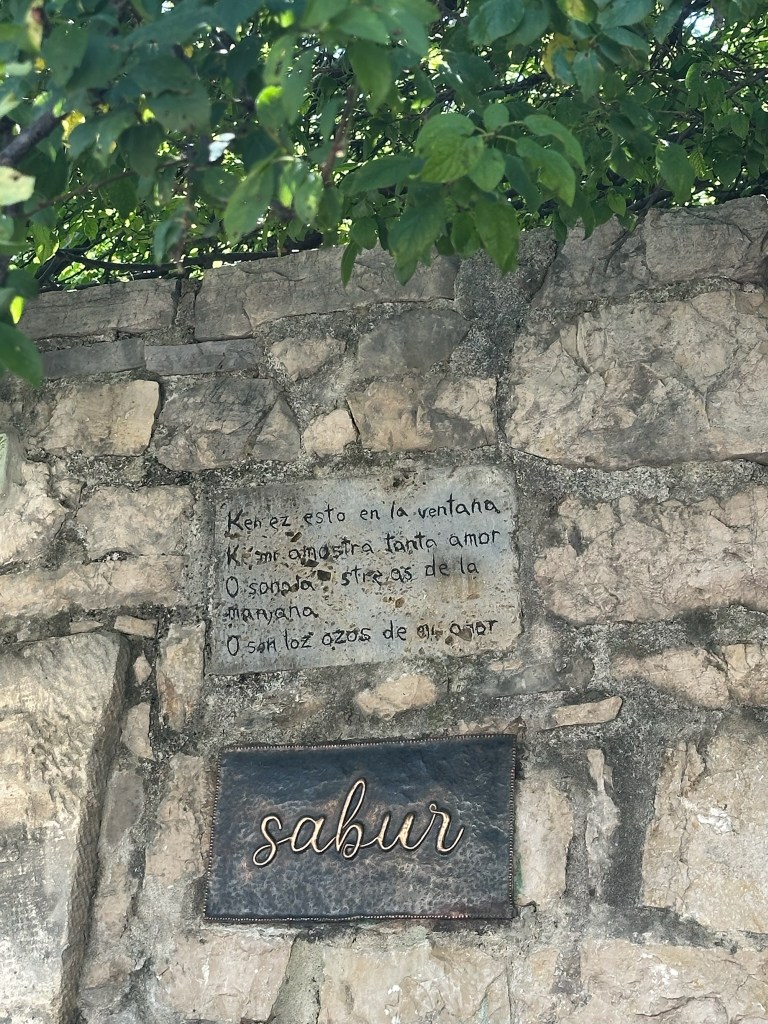 Ken ez esto en la ventana
Ki mi amostra tanta amor
O son la streias de la
manjana
O son loz ozos de mi amor
sabur